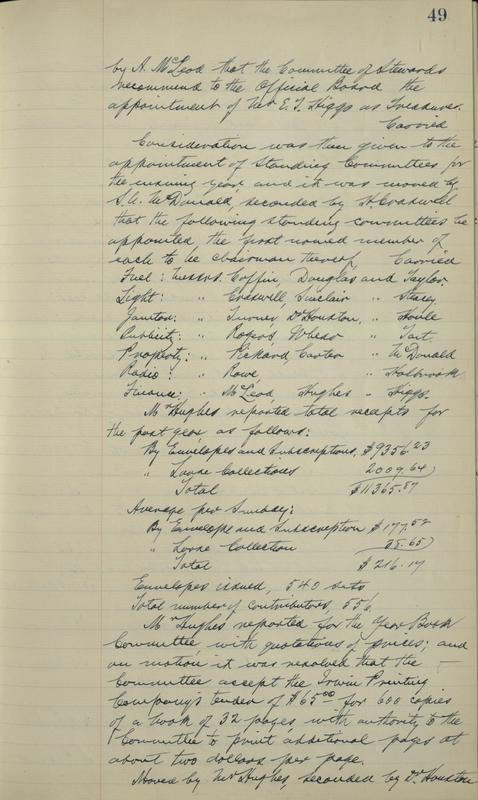 49
by A. McLeod that the Committee of Stewards
recommend to the Official Board the
appointment of Mr E. T. Higgs as Treasurer.
Carried
Consideration was then given to the
appointment of Standing Committees for
the ensuing year and it was moved by
S. A. McDonald, seconded by H. Craswell
that the following standing committees be
appointed, the first named member of
each to be chairman thereof, Carried
Fuel: Messrs. Coffin, Douglas and Taylor
Light: " Craswell, Sinclair " Stacey
Janitor: " Turner, Dr Houston, " Hoyle
Publicity: " Rogers, Whear " Tait
Property: " Pickard, Carter " McDonald
Radio: " Rowe, " Holbrook
Finance: " McLeod, Hughes " Higgs.
Mr Hughes reported total receipts for
the past year, as follows:
By Envelopes and Subscriptions, $9356.23
" Loose Collections 2009.64
Total $11365.87
Average per Sunday:
By Envelope and Subscription $177.52
" Loose Collection 38.65
Total $216.17
Envelopes issued, 540 sets
Total number of contributors, 556.
Mr Hughes reported for the Year Book
Committee, with quotations of prices; and
on motion it was resolved that the
Committee accept the Irwin Printing
Company's tender of $65.00 for 600 copies
of a book of 32 pages, with authority to the
Committee to print additional pages at
about two dollars per page.
Moved by Mr Hughes, seconded by Dr. Houston